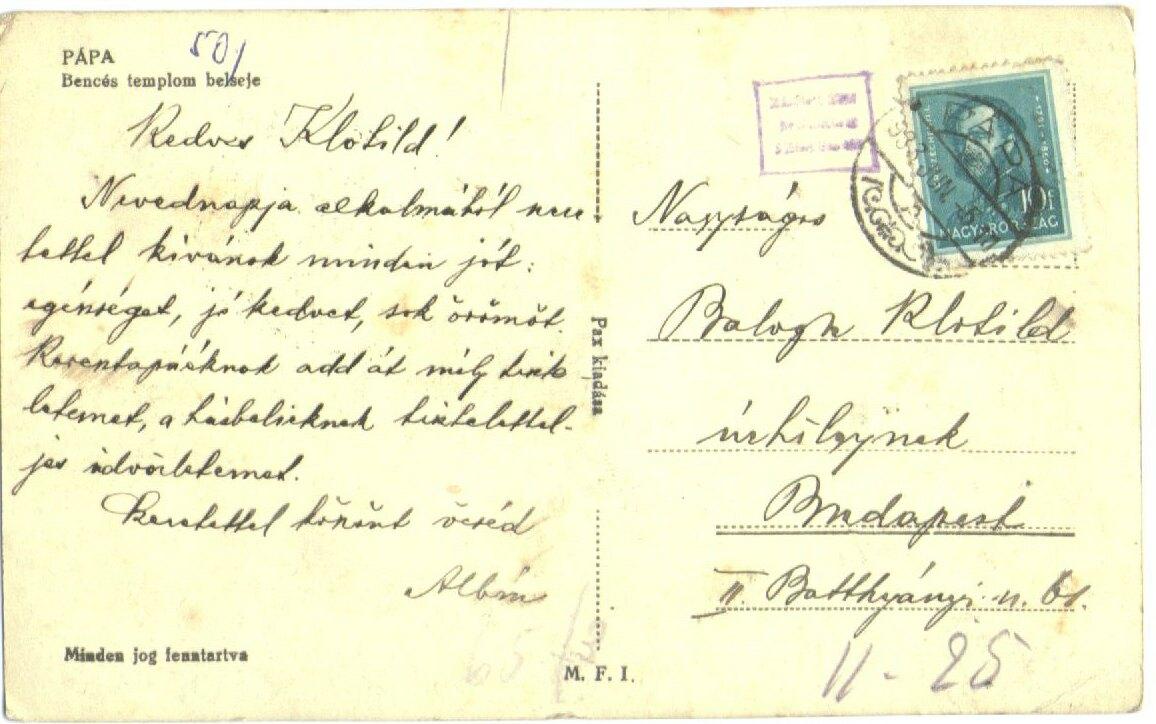 PÁPA
Bencés templom belseje
50/
Kedves Klotild!
Nevednapja alkalmából szere
tettel kivánok minden jót:
egénséget, jó kedvet, sok örömöt.
Keresztapáéknak add át mély tiszte
letemet, a házbelieknek tisztelettel-
jes üdvözletemet.
Szeretettel köszönt öcséd
Albin
Minden jog fenntartva
Pax kiadása
M. F. I.
10f
MAGYARORSZÁG
PÁPA
Nagyságos
Balogh Klotild
úrhölgynek
Budapest
II. Batthyányi u.
11-25